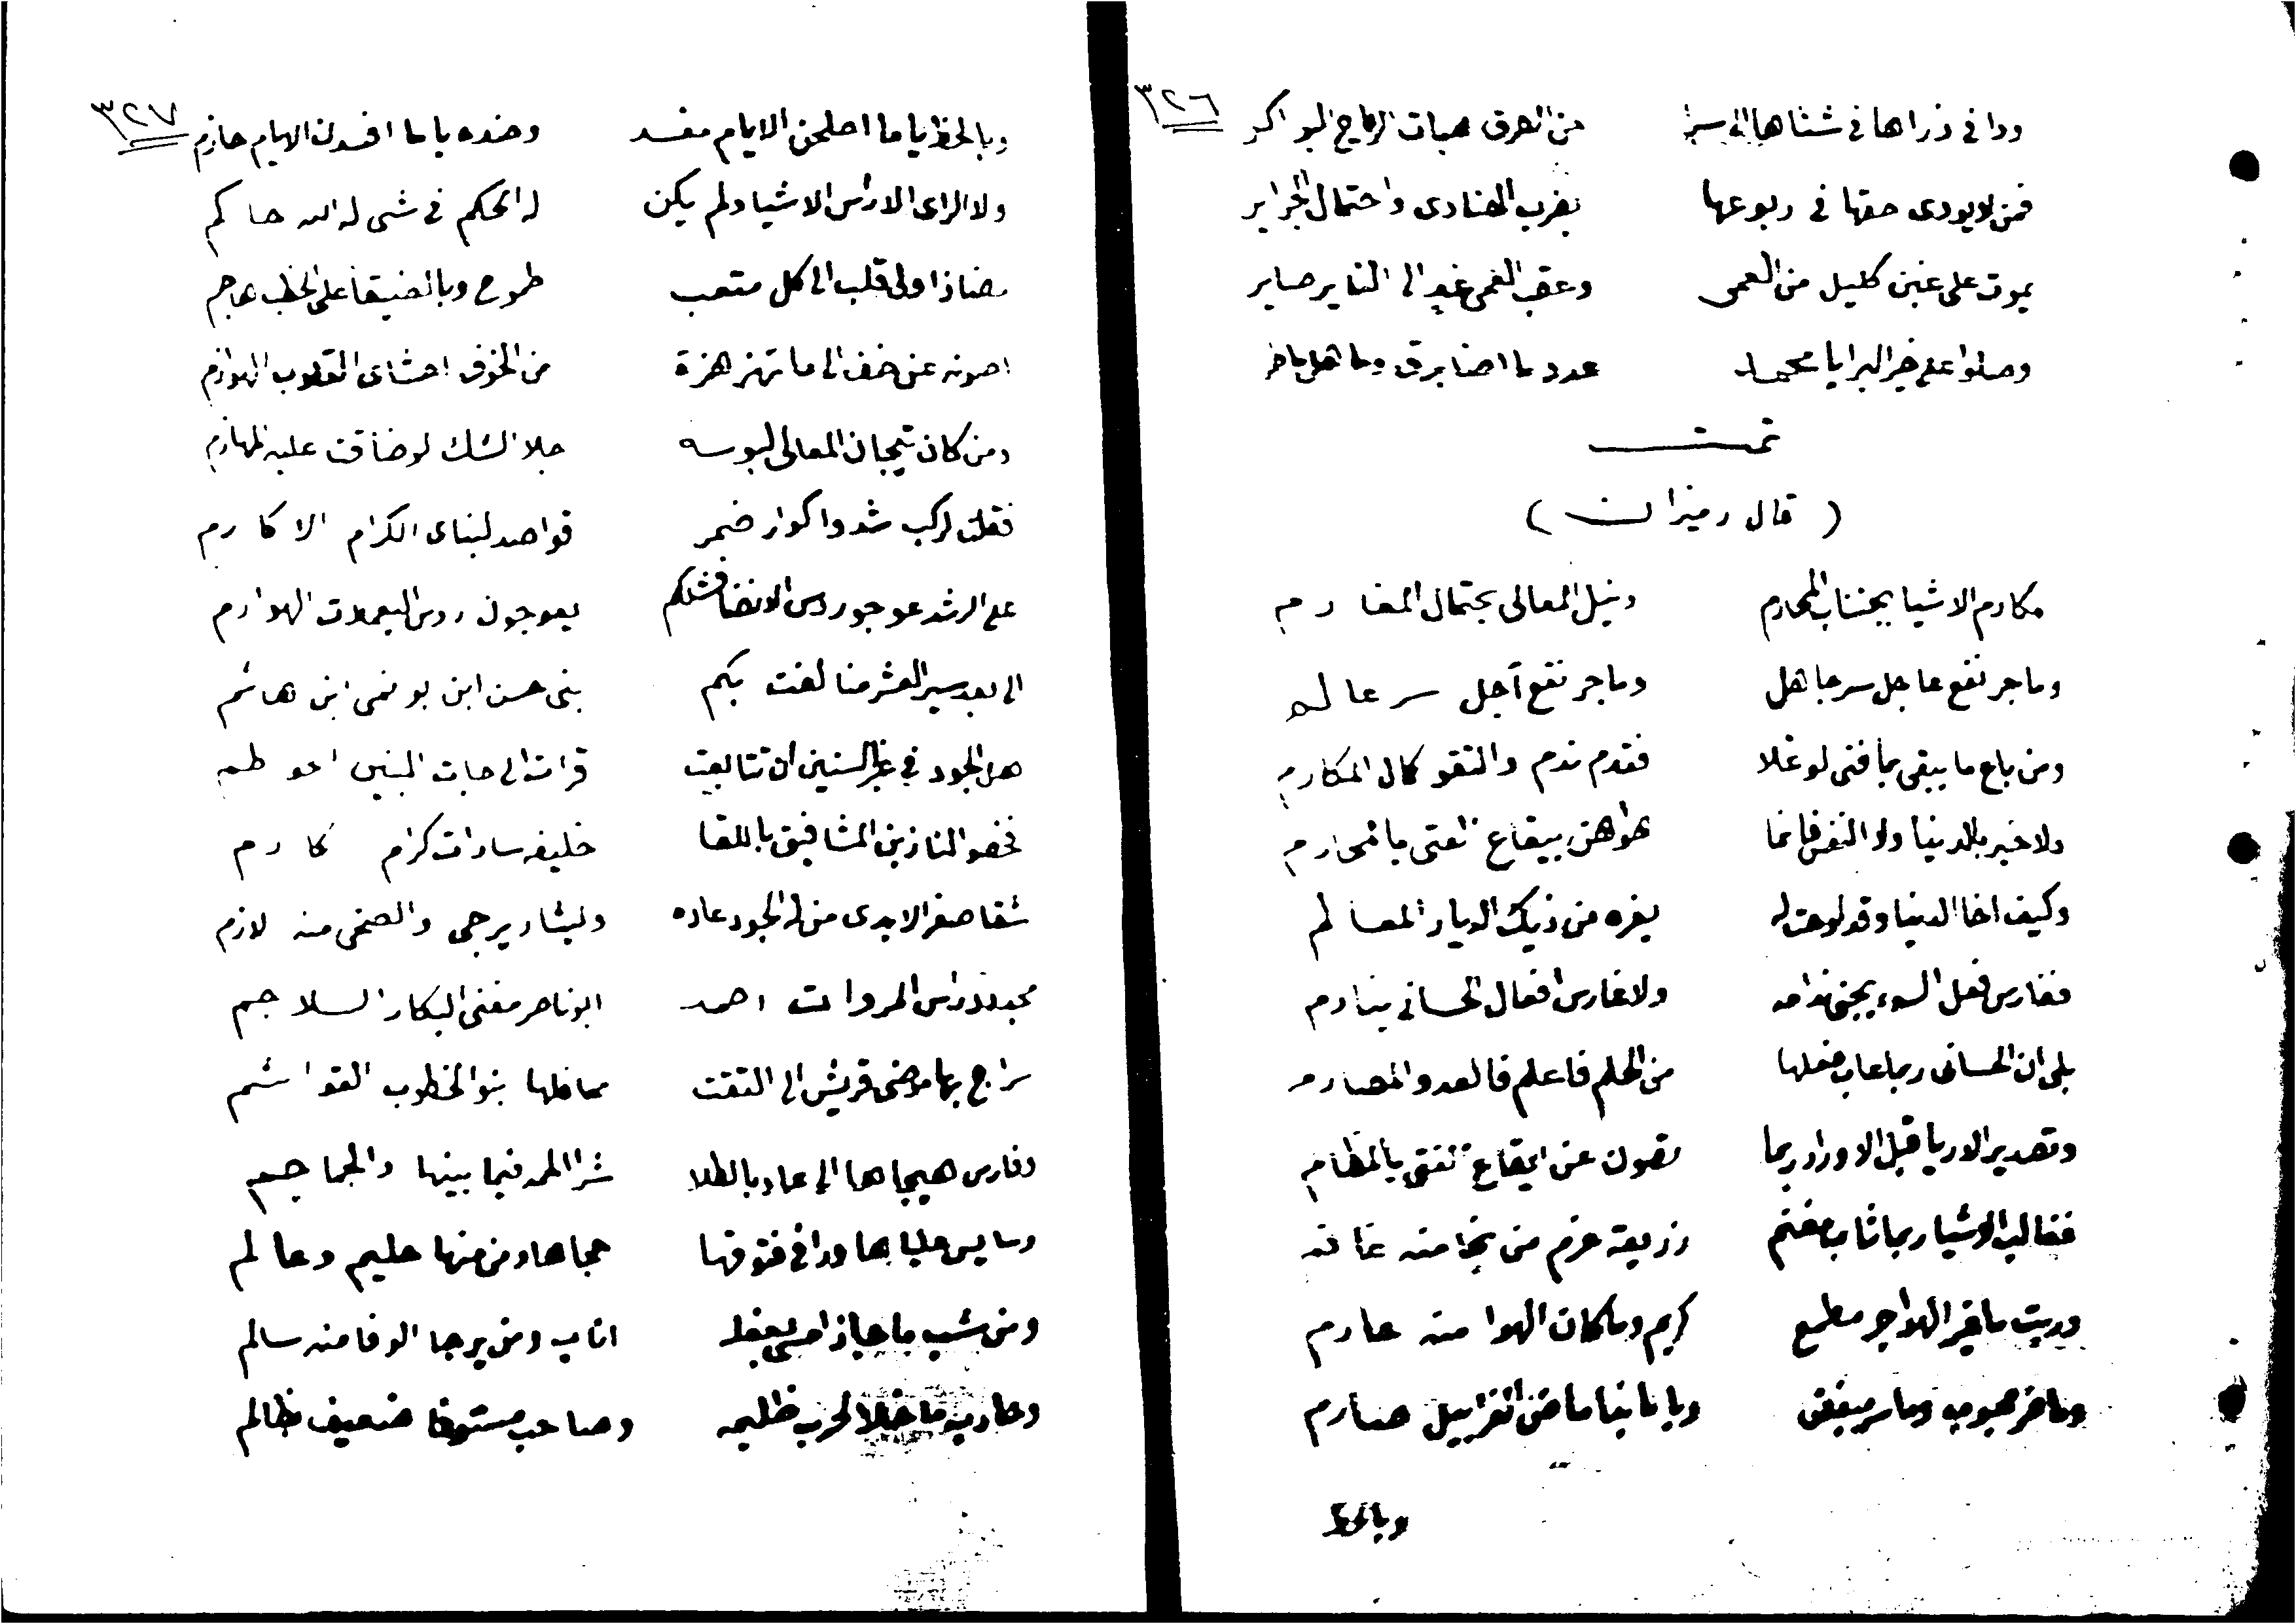 ٣٢٦
ودافى ذراها فى شتاها الى سرا من الهرق هبات الرياح البواكر
فمن لا يودى حقها فى ربوعها بضرب الهنادى واحتمال الجراير
يموت على غبن كليل من العمى وعقب العمى غدا الى النا ير صاير
وصلوا على خير البرايا محمد عدد ما اضا برق وما هل ماطر
تمت
( قال رميزان )
مكارم الاشيا بجتناب المحارم ونيل المعالى بحتمال المغارم
وما جر نفع عاجل سر جاهل وما جر نفع آجل سر عالم
ومن باع ما يبقى بما فنى لو غلا فقدم ندم والتقو كال المكارم
ولا خير بالدنيا ولا النفس فانما هواهن بيقاع الفتى بالمحارم
وكيف اخا الدنيا وقد لوحت له يغره من ذيك الديار المعالم
فغارس فعل السوء يجنى ندامه ولا غارس افعال الحسانى بنادم
بلى ان الحسانى ربما عاب فعلها من الحلم فاعلم فالعدو المصارم
وتصدير الاريا قبل الاوراد ربما تصون عن ايقاع الفتى بالمظالم
فغالب الاشيا ربما ثاب مغنم رزيعة غرم من نجا منه غانم
وريت ما غير الهواجر مطمع كريم وما كان الهوا منه عارم
وما ضر محبوب وما سر مبغض ويا ما نبا ماضى الغرابيل صارم
وبالحظ
٣٢٧
وبالحظ ياما اصلحن الايام مفسد وضده ياما افسدن الايام حازم
ولا الراى الا راس الاشيا ولم يكن له الحكم فى شى له الله حاكم
مضاذا ولى قلب الى كل متعب طموح وبالضيقا على الخطب هاجم
اصونه عن خف الى ما تهز هزة من الخوف احشاى القلوب الهوازم
ومن كان تيجان المعالى لبوسه جلا الشك لو ضاقت عليه المهازم
فقلت لركب شدوا كوار ضمر قواصد لبناى الكرام الاكارم
على الرشد عوجو روس الانضا فمثلكم يعوجون روس اليعملات الهوارم
الى بعد سير العشر منا لفت بكم بنى حسن ابن بو نمى ابن هاشم
هل الجود فى غبر السنين ان تتابعت قرات الى جات السنين
فخصو النازين المشافيق باللقا خليفه سادات كرام كارم
شفا صفر الايدى من له الجود عاده ولبشار يرجى والصخى منه لازم
مجدد دراس المروات احمد ابو ناصر مفنى البكار السلاجم
سراج بها موضى قريش الى التقت محافلها بنو الخطوب القواشم
وفارس هيجاها الى عاد بالطلا شرا اللمه فيما بينها والجماجم
وسايس عليابها ورافى فتوقها حجاها ومن منها حليم وعالم
ومن شيب ما جاذ امسى يعقل اناب ومن يرجا الوفا منه سالم
وصاحب مستوفا ضعيف ظالم